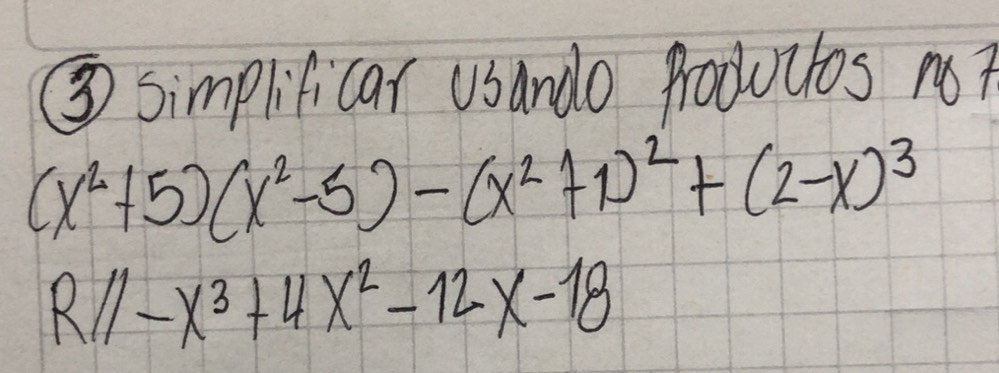 ③ Simplificar usando Productos
(x²+5)(x²-5)-(x²+1)²+(2-x)³
R// -x³+4x²-12x-18